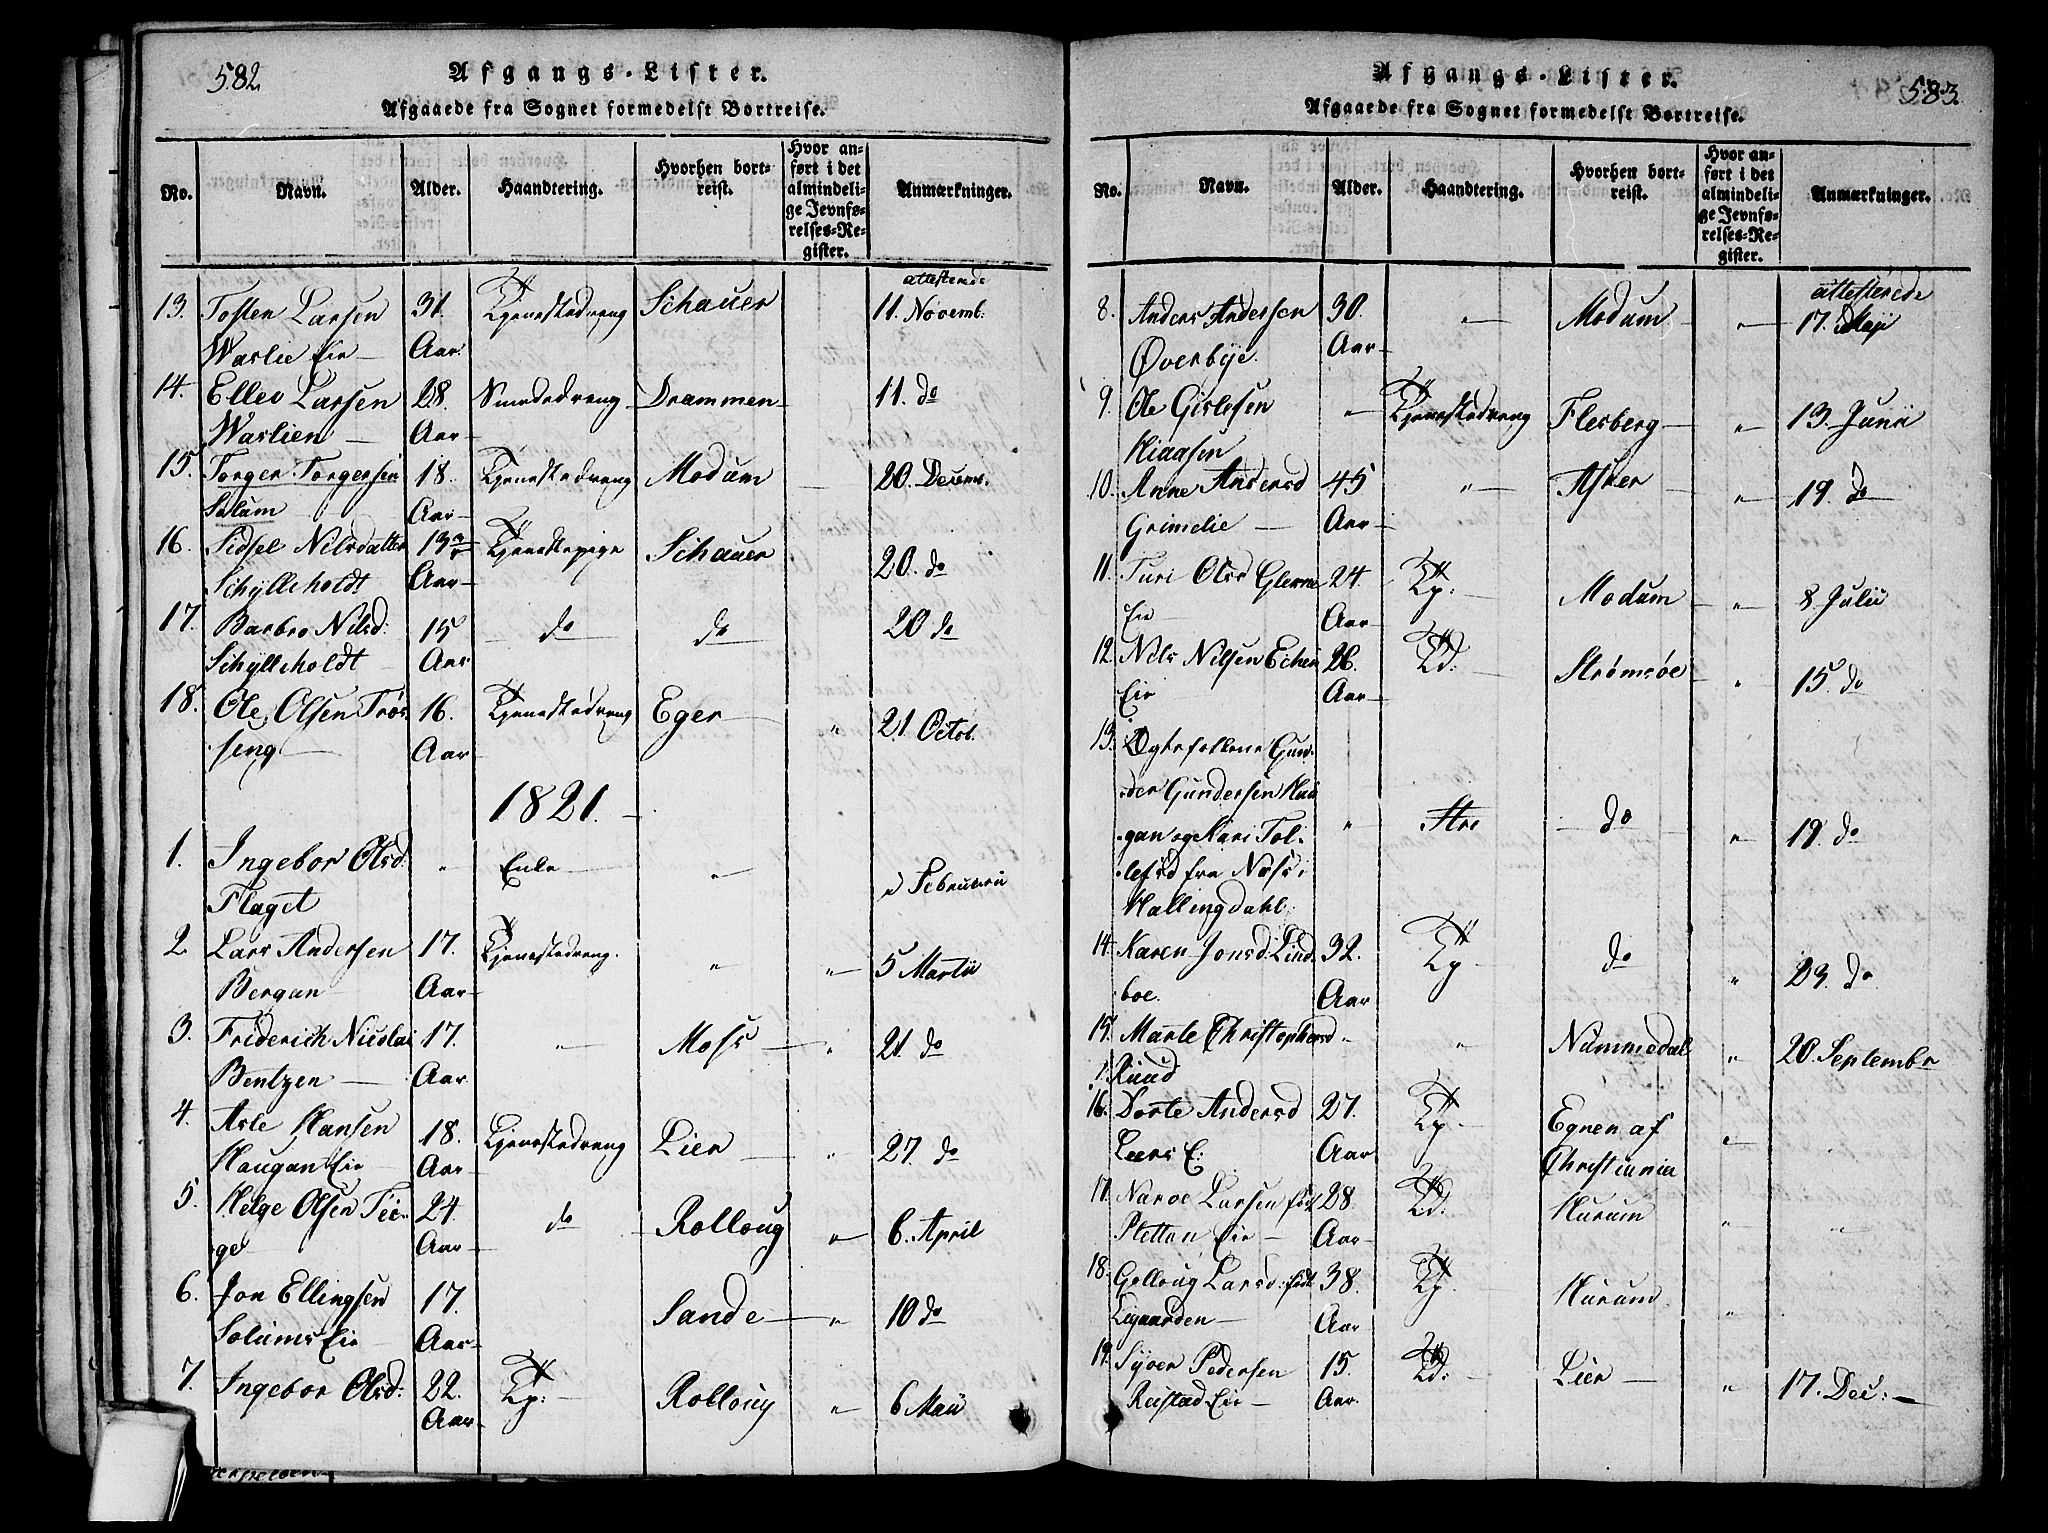 582.
Afgangs-Lister.
Afgaaede fra Sognet formedelst Bortreise.
No. Navn. Alder. Haandtering. Hvorhen bortreist. Hvor anført i det almindelige Jevnførelses-Register. Anmærkninger.
attesterede
13. Tosten Larsen 31. Tjenestedreng Schauer 11. Novemb:
Waslie Eie Aar
14. Ellev Larsen 28. Smededreng Drammen 11. do
Waslien Aar
15. Torger Torgersen 18. Tjenestedreng Modum 20. Decemb.
Solum Aar
16. Sidsel Nilsdatter 13 Tjenestepige Schauer 20. do
Schylleholdt Aar
17. Barbro Nilsd: 15 do do 20 do
Schylleholdt Aar
18. Ole Olsen Trøs 16. Tjenestedreng Eger " 21 Octob.
seng Aar
1821.
1. Ingebor Olsd: " Enke " Februarii
Flaget
2 Lars Andersen 17. Tjenestedreng. " " 5 Martii
Bergan Aar
3. Friderich Nicolai 17. " Moss " 21. do
Bentzen Aar
4. Asle Hansen 18. Tjenestedreng Lier " 27. do
Haugan Eie Aar
5. Helge Olsen Tei- 24. do Rolloug " 6. April
ge Aar
6. Jon Ellingsen 17. Sande " 10 do
Solums Eie Aar
7. Ingebor Olsd: 22. Tp: Rolloug " 6 Maii
Aar
583.
Afgangs-Lister.
Afgaaede fra Sognet formedelst Bortreise.
No. Navn. Alder. Haandtering. Hvorhen bortreist. Hvor anført i det almindelige Jevnførelses-Register. Anmærkninger.
attesterede
8. Anders Andersen 30. " Modum " 17. Maji
Øverbye. Aar
9. Ole Gislesen " Tjenestedreng Flesberg " 13. Junii
Hiaasen
10. Anne Andersd 45 " Asker " 19. do
Grimelie Aar
11. Turi Olsd Glerne 24. Tp: Modum " 8 Julii
Eie Aar
12. Nils Nilsen Eichen 26. Td: Strømsøe " 15. do
Eie Aar
13. Ægtefolkene Gun-
der Gundersen Hau
gan og Kari Tol- " do " 19. do
lefsd fra Næss i
Hallingdahl.
14. Karen Jonsd: Lind 32. Tp do " 23. do
boe. Aar
15. Marte Christophersd " " Nummedal " 20. Septembr
Ruud
16. Dorte Andersd 27. Tp. Egnen af "
Leers E: Aar Christiania
17. Narve Larsen født 28. Td: Hurum " "
Pletten Eie Aar
18. Gelloug Larsd: født 38. Tp. Hurum "
Liguarden Aar
19. Syver Pedersen 15. Td: Lier " 17. Dec:
Rustad Eie Aar.